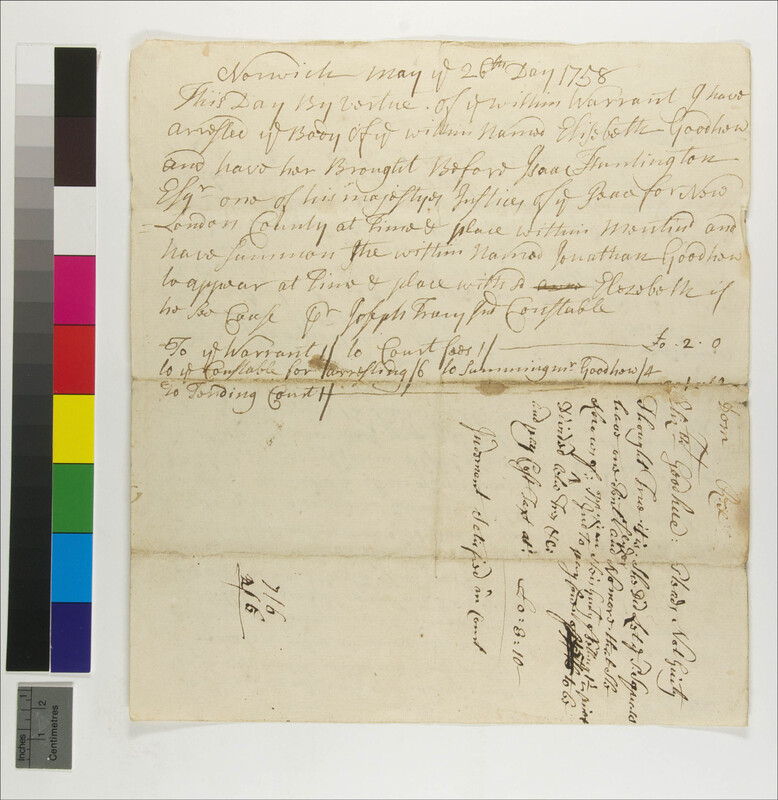 Norwich May ye 26th Day 1758
This Day By vertue of ye within Warrant I have
arrested ye Body of ye within Named Elisebeth Goodhew
and have her Brought Before Isaac Huntington
Esqr one of his majestyes Justices of ye Peace for New
London County at Time & place within Mentind and
have Summon the within Named Jonathan Goodhew
to appear at Time & place with sd Elezebeth if
he See Cause pr Joseph Tracy Constable
To ye Warrant 1/ to Court fees 1/ £0 . 2 . 0
to ye Constable for arresting /6 to Summoning mr Goodhew /4
to Tending Court 1/
Dom Rex
Elizth Goodhue: Pleads Not Guilty
Thought True it is She Did Let ye Squaws
have one Pint and No more that She
Knew of:
and to pay
and pay Cost Taxt at: £0 = 8 = 10
Judgment Satisfied in Court
7/6
2/6